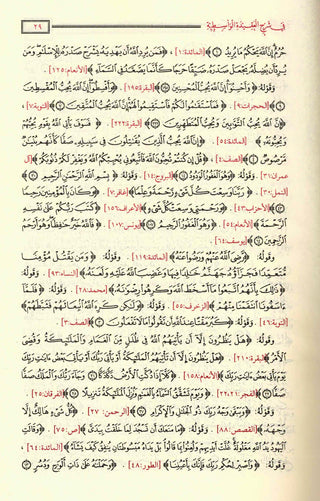 في شرح العقيدة الواسطية ٢٩
حُرُمٌ إِنَّ اللَّهَ يَحْكُمُ مَا يُرِيدُ ﴾ [المائدة: ١]، ﴿ فَمَن يُرِدِ اللَّهُ أَن يَهْدِيَهُ يَشْرَحْ صَدْرَهُ لِلْإِسْلَامِ وَمَن
يُرِدْ أَن يُضِلَّهُ يَجْعَلْ صَدْرَهُ ضَيِّقًا حَرَجًا كَأَنَّمَا يَصَّعَّدُ فِي السَّمَاءِ ﴾ [الأنعام: ١٢٥].
وَقَوْلُهُ: ﴿ وَأَحْسِنُوا إِنَّ اللَّهَ يُحِبُّ الْمُحْسِنِينَ ﴾ [البقرة: ١٩٥]، ﴿ وَأَقْسِطُوا إِنَّ اللَّهَ يُحِبُّ الْمُقْسِطِينَ ﴾
[الحجرات: ٩]، ﴿ فَمَا اسْتَقَامُوا لَكُمْ فَاسْتَقِيمُوا لَهُمْ إِنَّ اللَّهَ يُحِبُّ الْمُتَّقِينَ ﴾ [التوبة: ٧]،
﴿ إِنَّ اللَّهَ يُحِبُّ التَّوَّابِينَ وَيُحِبُّ الْمُتَطَهِّرِينَ ﴾ [البقرة: ٢٢٢]، ﴿ فَسَوْفَ يَأْتِي اللَّهُ بِقَوْمٍ يُحِبُّهُمْ
وَيُحِبُّونَهُ ﴾ [المائدة: ٥٤]، ﴿ إِنَّ اللَّهَ يُحِبُّ الَّذِينَ يُقَاتِلُونَ فِي سَبِيلِهِ صَفًّا كَأَنَّهُم بُنْيَانٌ
مَّرْصُوصٌ ﴾ [الصف: ٤]، ﴿ قُلْ إِن كُنتُمْ تُحِبُّونَ اللَّهَ فَاتَّبِعُونِي يُحْبِبْكُمُ اللَّهُ وَيَغْفِرْ لَكُمْ ذُنُوبَكُمْ ﴾ [آل
عمران: ٣١]. وَقَوْلُهُ: ﴿ وَهُوَ الْغَفُورُ الْوَدُودُ ﴾ [البروج: ١٤]، وَقَوْلُهُ: ﴿ بِسْمِ اللَّهِ الرَّحْمَٰنِ الرَّحِيمِ ﴾
[النمل: ٣٠]، ﴿ رَبَّنَا وَسِعْتَ كُلَّ شَيْءٍ رَّحْمَةً وَعِلْمًا ﴾ [غافر: ٧]، ﴿ وَكَانَ بِالْمُؤْمِنِينَ رَحِيمًا
﴾ [الأحزاب: ٤٣]، ﴿ وَرَحْمَتِي وَسِعَتْ كُلَّ شَيْءٍ ﴾ [الأعراف: ١٥٦]، ﴿ كَتَبَ رَبُّكُمْ عَلَىٰ نَفْسِهِ
الرَّحْمَةَ ﴾ [الأنعام: ٥٤]، ﴿ وَهُوَ الْغَفُورُ الرَّحِيمُ ﴾ [يونس: ١٠٧]، ﴿ فَاللَّهُ خَيْرٌ حَافِظًا وَهُوَ أَرْحَمُ
الرَّاحِمِينَ ﴾ [يوسف: ٦٤].
وَقَوْلُهُ: ﴿ رَّضِيَ اللَّهُ عَنْهُمْ وَرَضُوا عَنْهُ ﴾ [المائدة: ١١٩]. وَقَوْلُهُ: ﴿ وَمَن يَقْتُلْ مُؤْمِنًا
مُّتَعَمِّدًا فَجَزَاؤُهُ جَهَنَّمُ خَالِدًا فِيهَا وَغَضِبَ اللَّهُ عَلَيْهِ وَلَعَنَهُ ﴾ [النساء: ٩٣]، وَقَوْلُهُ:
﴿ ذَٰلِكَ بِأَنَّهُمُ اتَّبَعُوا مَا أَسْخَطَ اللَّهَ وَكَرِهُوا رِضْوَانَهُ ﴾ [محمد: ٢٨]، ﴿ فَلَمَّا
آسَفُونَا انتَقَمْنَا مِنْهُمْ ﴾ [الزخرف: ٥٥]، وَقَوْلُهُ: ﴿ وَلَٰكِن كَرِهَ اللَّهُ انبِعَاثَهُمْ فَثَبَّطَهُمْ ﴾
[التوبة: ٤٦]، وَقَوْلُهُ: ﴿ كَبُرَ مَقْتًا عِندَ اللَّهِ أَن تَقُولُوا مَا لَا تَفْعَلُونَ ﴾ [الصف: ٣].
وَقَوْلُهُ: ﴿ هَلْ يَنظُرُونَ إِلَّا أَن يَأْتِيَهُمُ اللَّهُ فِي ظُلَلٍ مِّنَ الْغَمَامِ وَالْمَلَائِكَةُ وَقُضِيَ
الْأَمْرُ ﴾ [البقرة: ٢١٠]، ﴿ هَلْ يَنظُرُونَ إِلَّا أَن تَأْتِيَهُمُ الْمَلَائِكَةُ أَوْ يَأْتِيَ رَبُّكَ أَوْ يَأْتِيَ بَعْضُ آيَاتِ رَبِّكَ
يَوْمَ يَأْتِي بَعْضُ آيَاتِ رَبِّكَ ﴾ [الأنعام: ١٥٨]، ﴿ كَلَّا إِذَا دُكَّتِ الْأَرْضُ دَكًّا دَكًّا وَجَاءَ رَبُّكَ وَالْمَلَكُ صَفًّا
صَفًّا ﴾ [الفجر: ٢١، ٢٢]، ﴿ وَيَوْمَ تَشَقَّقُ السَّمَاءُ بِالْغَمَامِ وَنُزِّلَ الْمَلَائِكَةُ تَنزِيلًا ﴾ [الفرقان: ٢٥].
وَقَوْلُهُ: ﴿ وَيَبْقَىٰ وَجْهُ رَبِّكَ ذُو الْجَلَالِ وَالْإِكْرَامِ ﴾ [الرحمن: ٢٧]، ﴿ كُلُّ شَيْءٍ هَالِكٌ إِلَّا
وَجْهَهُ ﴾ [القصص: ٨٨]. وَقَوْلُهُ: ﴿ مَا مَنَعَكَ أَن تَسْجُدَ لِمَا خَلَقْتُ بِيَدَيَّ ﴾ [ص: ٧٥]، ﴿ وَقَالَتِ
الْيَهُودُ يَدُ اللَّهِ مَغْلُولَةٌ غُلَّتْ أَيْدِيهِمْ وَلُعِنُوا بِمَا قَالُوا بَلْ يَدَاهُ مَبْسُوطَتَانِ يُنفِقُ كَيْفَ يَشَاءُ ﴾ [المائدة: ٦٤]،
﴿ وَاصْبِرْ لِحُكْمِ رَبِّكَ فَإِنَّكَ بِأَعْيُنِنَا ﴾ [الطور: ٤٨]، ﴿ وَحَمَلْنَاهُ عَلَىٰ ذَاتِ أَلْوَاحٍ وَدُسُرٍ